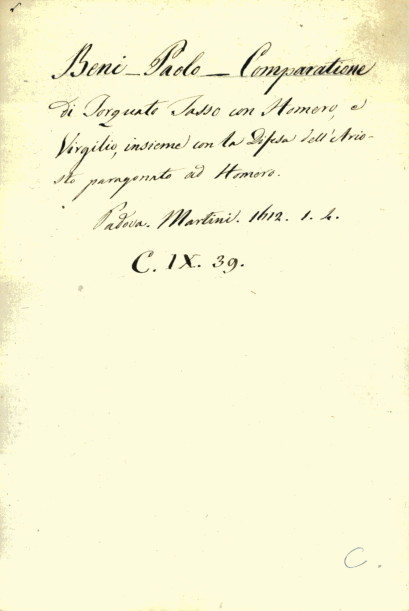 Beni _ Paolo _ Comparatione
di Torquato Tasso con Homero, e
Virgilio, insieme con la Difesa dell'Ario-
sto paragonato ad Homero.
Padova. Martini. 1612. 1. 4.
C. IX. 39.
C.